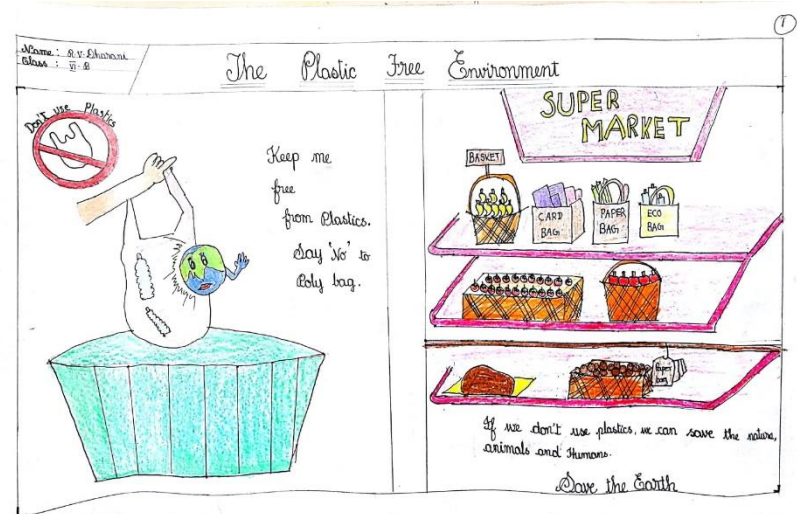 1
Name : R.V. Dharani
Class : VI - B
The Plastic Free Environment
Don't use Plastics
Keep me
free
from Plastics.
Say 'No' to
Poly bag.
SUPER
MARKET
BASKET
CARD
BAG
PAPER
BAG
ECO
BAG
Paper
bag
If we don't use plastics, we can save the nature,
animals and Humans.
Save the Earth